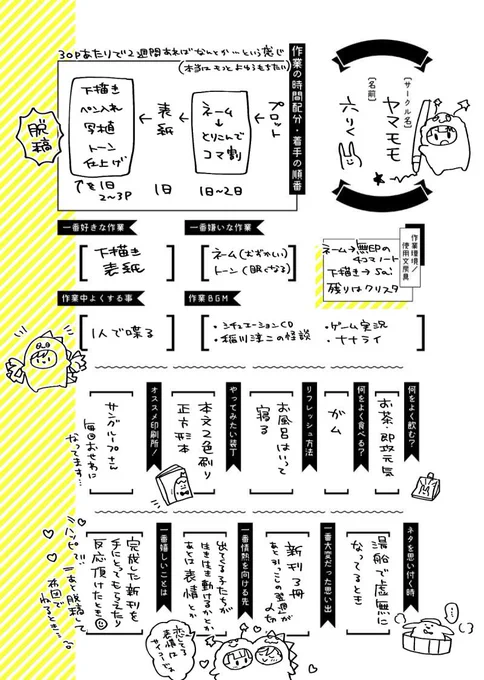 [サークル名]
ヤマモモ
[名前]
六りく
作業の時間配分・着手の順番
30Pあたりで2週間あればなんとか…という感じ
(本当はもっとおゆるもきたい)
プロット
ネーム
↓
とりこんで
コマ割
1日~2日
表紙
1日
下描き
ペン入れ
写植
トーン
仕上げ
を1日
2~3P
脱稿
作業環境/
使用文房具
ネーム→無印の
4コマノート
下描き→Sai
残りはクリスタ
一番嫌いな作業
ネーム(むずかしい)
トーン(眠くなる)
一番好きな作業
下描き
表紙
作業BGM
・シチュエーションCD
・稲川淳二の怪談
・ゲーム実況
・ナナライ
作業中よくする事
1人で喋る
何をよく飲む?
お茶・即攻元気
何をよく食べる?
ガム
リフレッシュ方法
お風呂はいって
寝る
やってみたい装丁
本文2色刷り
正方形本
オススメ印刷所!
サングループさん
毎回おせわに
なってます…
ネタを思い付く時
湯船で虚無に
なってるとき
一番大変だった思い出
新刊3冊
一番情熱を向ける先
出てくる子たちが
生き生き動けるかとか
あとは表情とか
恋してる
表情は
一番嬉しいことは
完成した新刊を
手にとってもらえたり
反応頂けたとき
ハッピー!!
あと脱稿して
布団で
ねるとき…